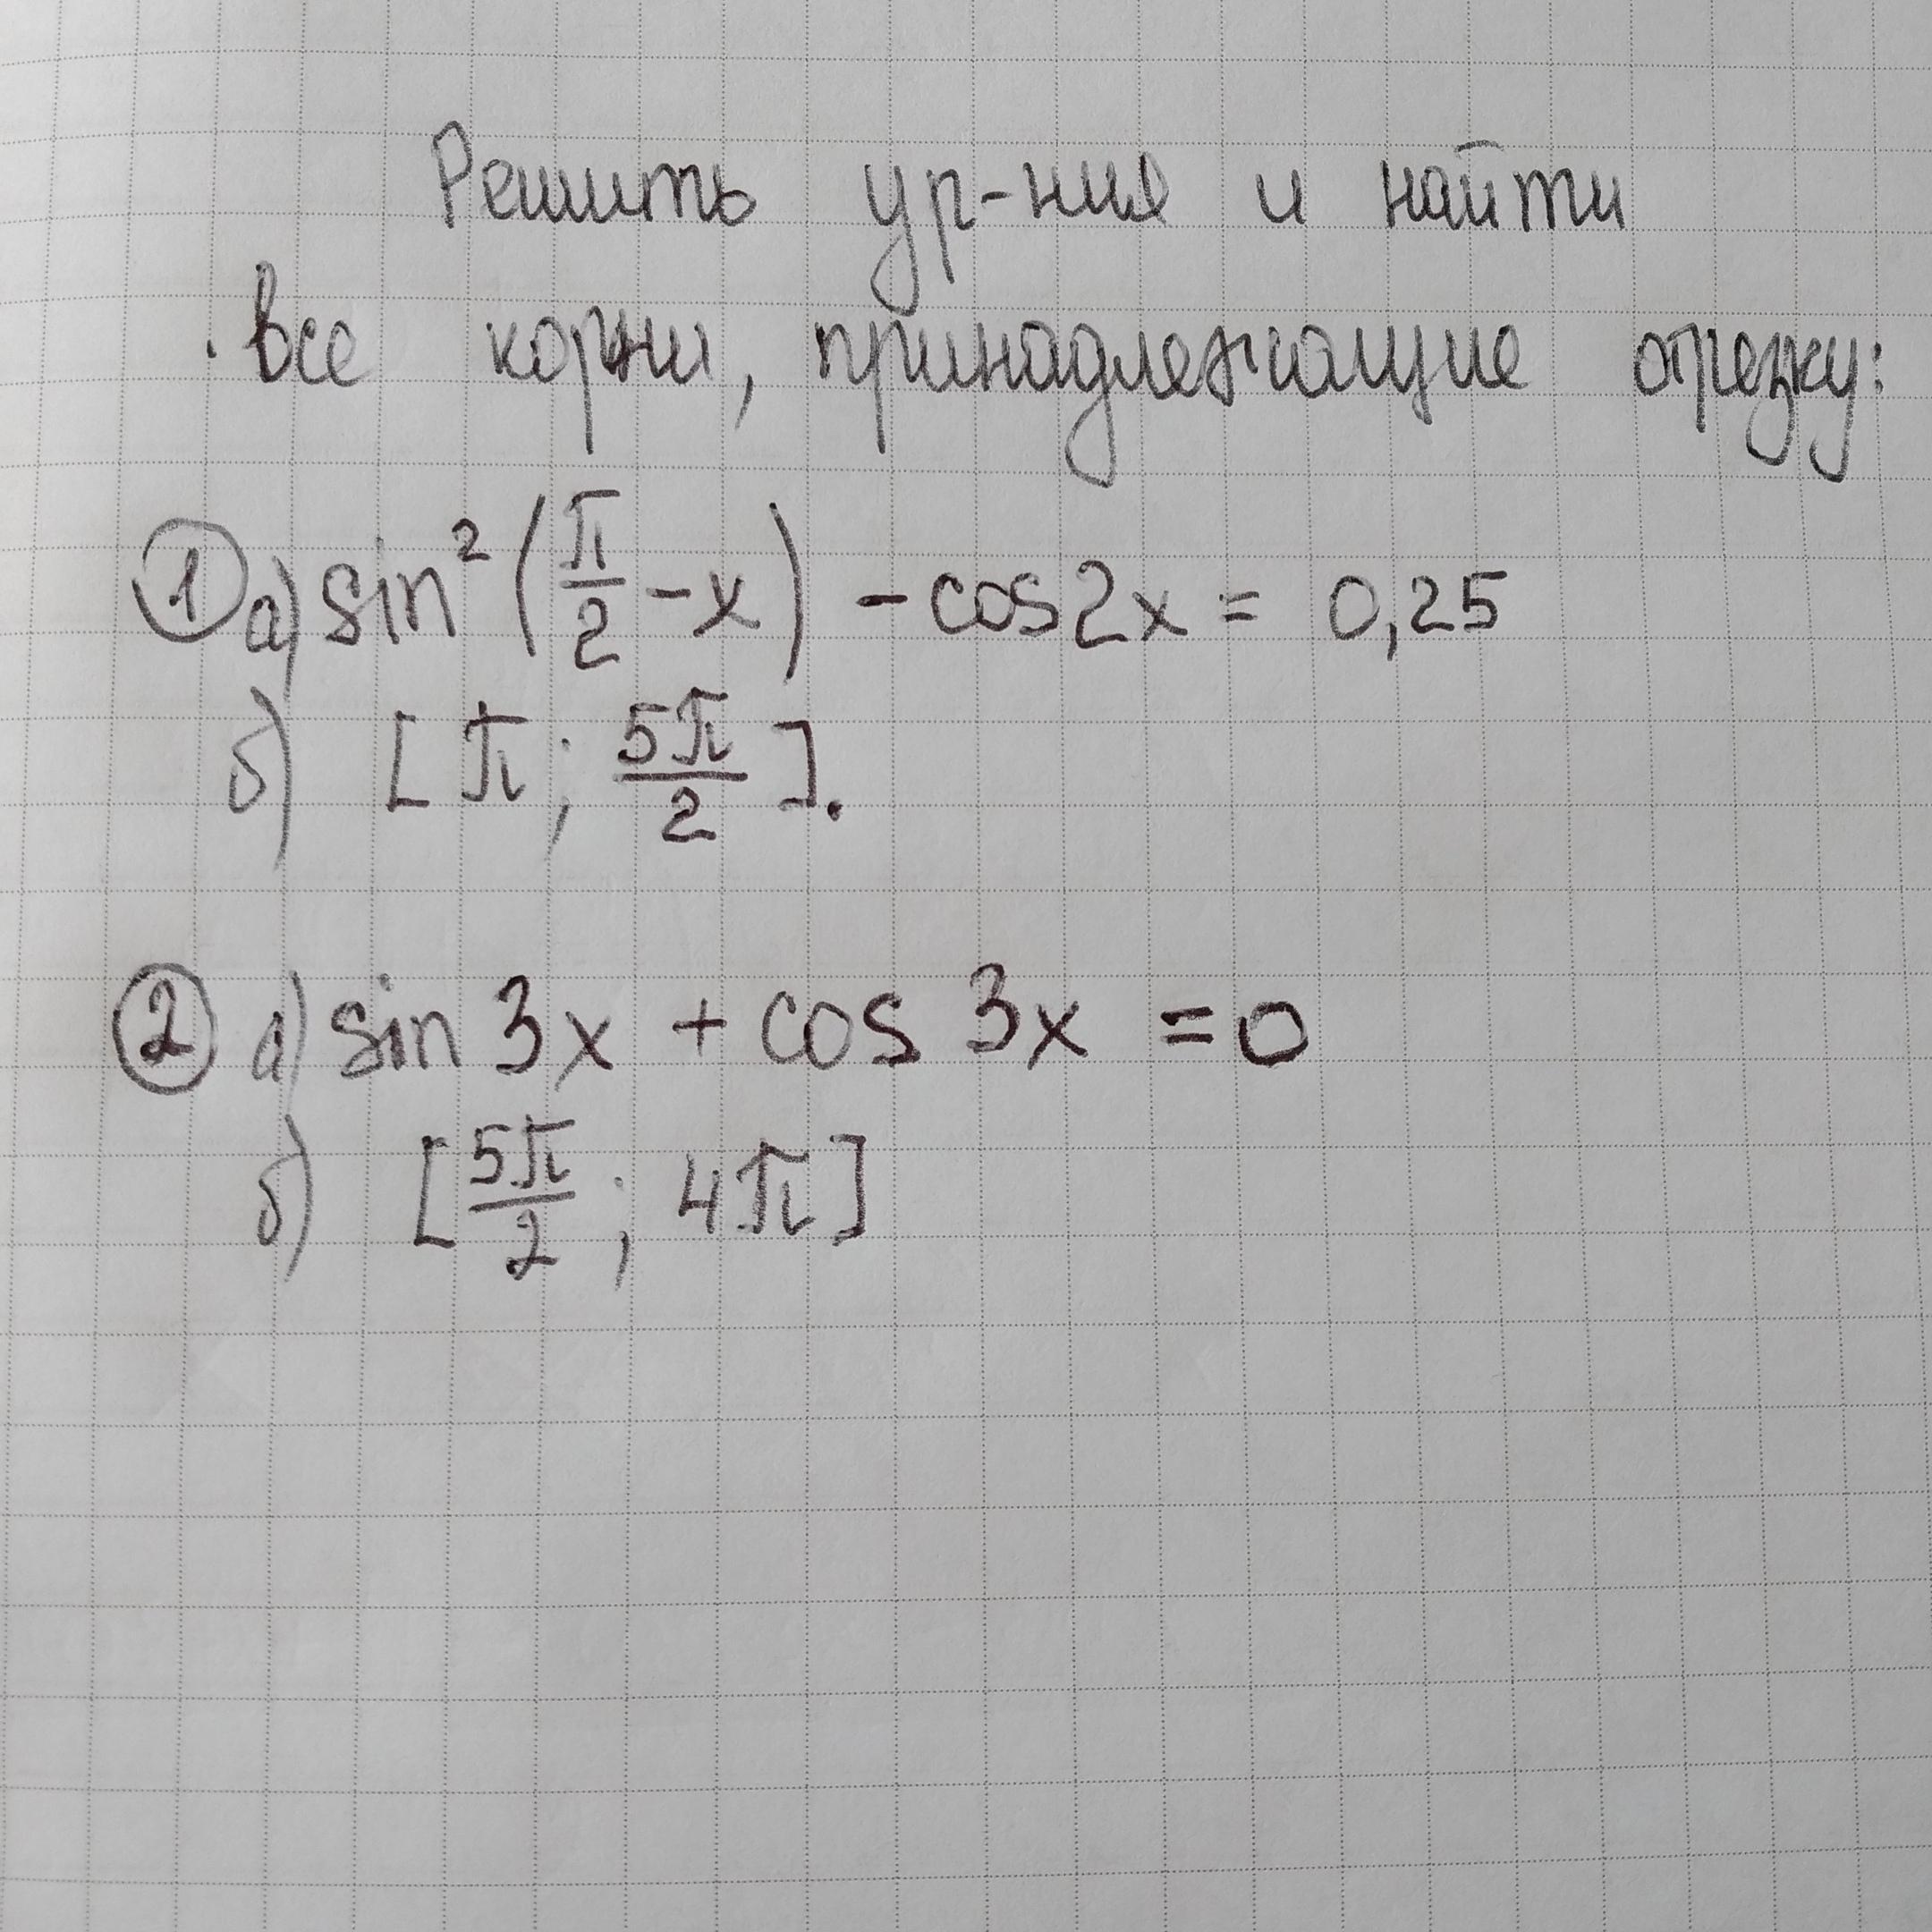 Решить ур-ния и найти
все корни, принадлежащие отрезку:
① а) sin² (π/2 - x) - cos2x = 0,25
б) [π; 5π/2].
② а) sin 3x + cos 3x = 0
б) [5π/2; 4π]